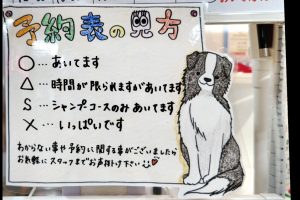 予約表の見方
○… あいてます
△… 時間が限られますがあいてます
S… シャンプーコースのみ あいてます
×… いっぱいです
わからない事や予約に関する事がございましたら
お気軽にスタッフまでお声掛け下さい